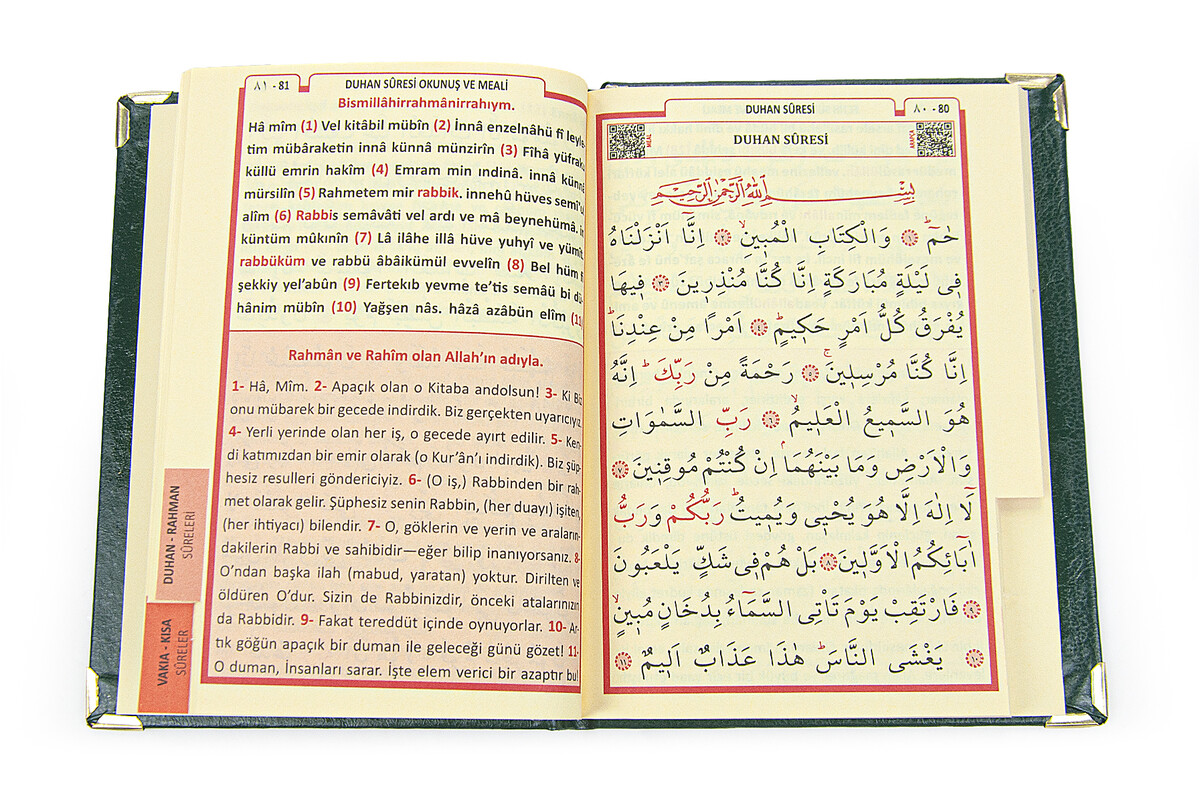 ٨١ - 81
DUHAN SÛRESİ OKUNUŞ VE MEALİ
Bismillâhirrahmânirrahıym.
Hâ mîm (1) Vel kitâbil mübîn (2) İnnâ enzelnâhü fî leyle
tim mübâraketin innâ künnâ münzirîn (3) Fîhâ yüfraku
küllü emrin hakîm (4) Emram min ındinâ. innâ künnâ
mürsilîn (5) Rahmetem mir rabbik. innehû hüves semî'ul
alîm (6) Rabbis semâvâti vel ardı ve mâ beynehümâ. in
küntüm mûkınîn (7) Lâ ilâhe illâ hüve yuhyî ve yümît.
rabbüküm ve rabbü âbâikümül evvelîn (8) Bel hüm fî
şekkiy yel'abûn (9) Fertekıb yevme te'tis semâü bi dü-
hânim mübîn (10) Yağşen nâs. hâzâ azâbün elîm (11)
Rahmân ve Rahîm olan Allah'ın adıyla.
1- Hâ, Mîm. 2- Apaçık olan o Kitaba andolsun! 3- Ki Biz
onu mübarek bir gecede indirdik. Biz gerçekten uyarıcıyız.
4- Yerli yerinde olan her iş, o gecede ayırt edilir. 5- Ken-
di katımızdan bir emir olarak (o Kur'ân'ı indirdik). Biz şüp-
hesiz resulleri göndericiyiz. 6- (O iş,) Rabbinden bir rah-
met olarak gelir. Şüphesiz senin Rabbin, (her duayı) işiten,
(her ihtiyacı) bilendir. 7- O, göklerin ve yerin ve araların-
dakilerin Rabbi ve sahibidir—eğer bilip inanıyorsanız. 8-
O'ndan başka ilah (mabud, yaratan) yoktur. Dirilten ve
öldüren O'dur. Sizin de Rabbinizdir, önceki atalarınızın
da Rabbidir. 9- Fakat tereddüt içinde oynuyorlar. 10- Ar-
tık göğün apaçık bir duman ile geleceği günü gözet! 11-
O duman, İnsanları sarar. İşte elem verici bir azaptır bu!
DUHAN - RAHMAN
SÛRELERİ
VAKIA - KISA
SÛRELER
DUHAN SÛRESİ
٨٠ - 80
MEAL
DUHAN SÛRESİ
ARAPÇA
بِسْمِ اللّٰهِ الرَّحْمٰنِ الرَّحِيمِ
حٰمٓ ۚ ﴿١﴾ وَالْكِتَابِ الْمُبٖينِۙ ﴿٢﴾ اِنَّٓا اَنْزَلْنَاهُ
فٖى لَيْلَةٍ مُبَارَكَةٍ اِنَّا كُنَّا مُنْذِرٖينَ ﴿٣﴾ فٖيهَا
يُفْرَقُ كُلُّ اَمْرٍ حَكٖيمٍۚ ﴿٤﴾ اَمْرًا مِنْ عِنْدِنَاۜ
اِنَّا كُنَّا مُرْسِلٖينَۚ ﴿٥﴾ رَحْمَةً مِنْ رَبِّكَۜ اِنَّهُ
هُوَ السَّمٖيعُ الْعَلٖيمُۙ ﴿٦﴾ رَبِّ السَّمٰوَاتِ
وَالْاَرْضِ وَمَا بَيْنَهُمَاۢ اِنْ كُنْتُمْ مُوقِنٖينَ ﴿٧﴾
لَٓا اِلٰهَ اِلَّا هُوَ يُحْيٖى وَيُمٖيتُۜ رَبُّكُمْ وَرَبُّ
اٰبَٓائِكُمُ الْاَوَّلٖينَ ﴿٨﴾ بَلْ هُمْ فٖى شَكٍّ يَلْعَبُونَ
﴿٩﴾ فَارْتَقِبْ يَوْمَ تَاْتِى السَّمَٓاءُ بِدُخَانٍ مُبٖينٍۙ
﴿١٠﴾ يَغْشَى النَّاسَۜ هٰذَا عَذَابٌ اَلٖيمٌ ﴿١١﴾